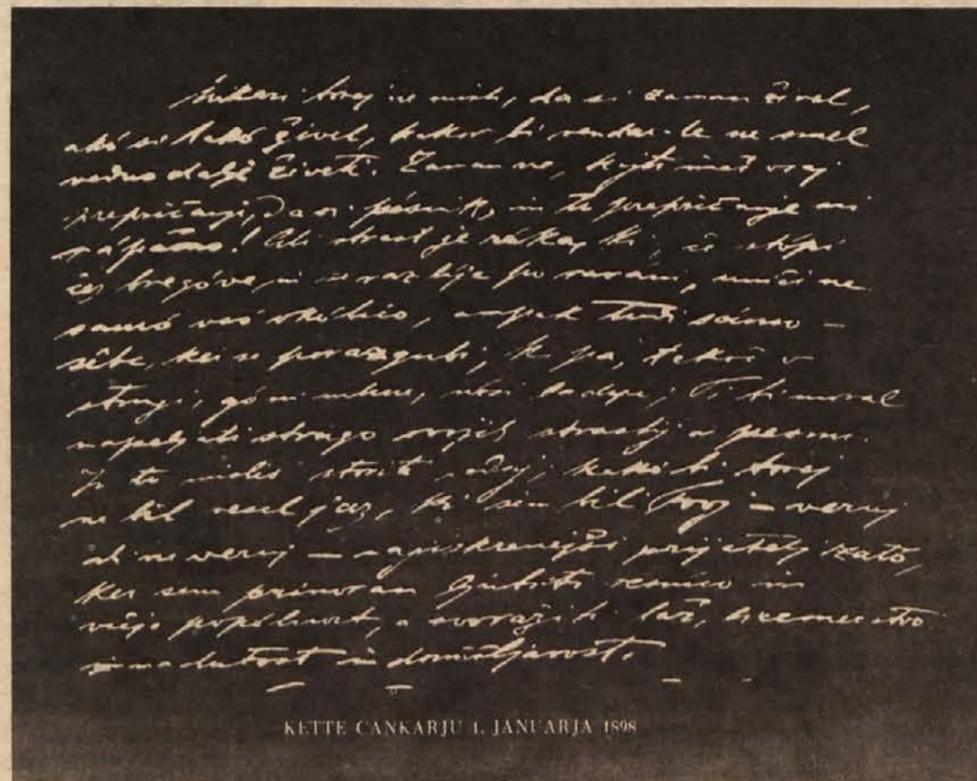 Nikari torej ne misli, da si zaman živel,
akó si takó živel, kakor bi vendar-le ne smel
vedno dalje živeti. Zaman ne, kajti imaš vsaj
prepričanje, da si pésnik, in to prepričanje ni
! Ali strast je réka, ki, če stópi
čez bregóve, in se razlije po ravani, uniči ne
samó vso okólico, ampak tudi sámo –
sêbe, ker se porazgubi; ki pa, tekóč v
strugi, góni mline, nosi ladije; Ti bi moral
napeljati strugo svojih strastij v pesmi.
In to misliš storiti sedaj; kakó bi torej
ne bil vesel jaz, ki sem bil Tvoj – veruj
ali ne veruj – najiskrenejši prijatelj zató,
ker sem primoran ljubiti resnico in
večjo popólnost, a sovražiti laž, licemerstvo
in nadutost in domišljavost.
KETTE CANKARJU 1. JANUARJA 1898